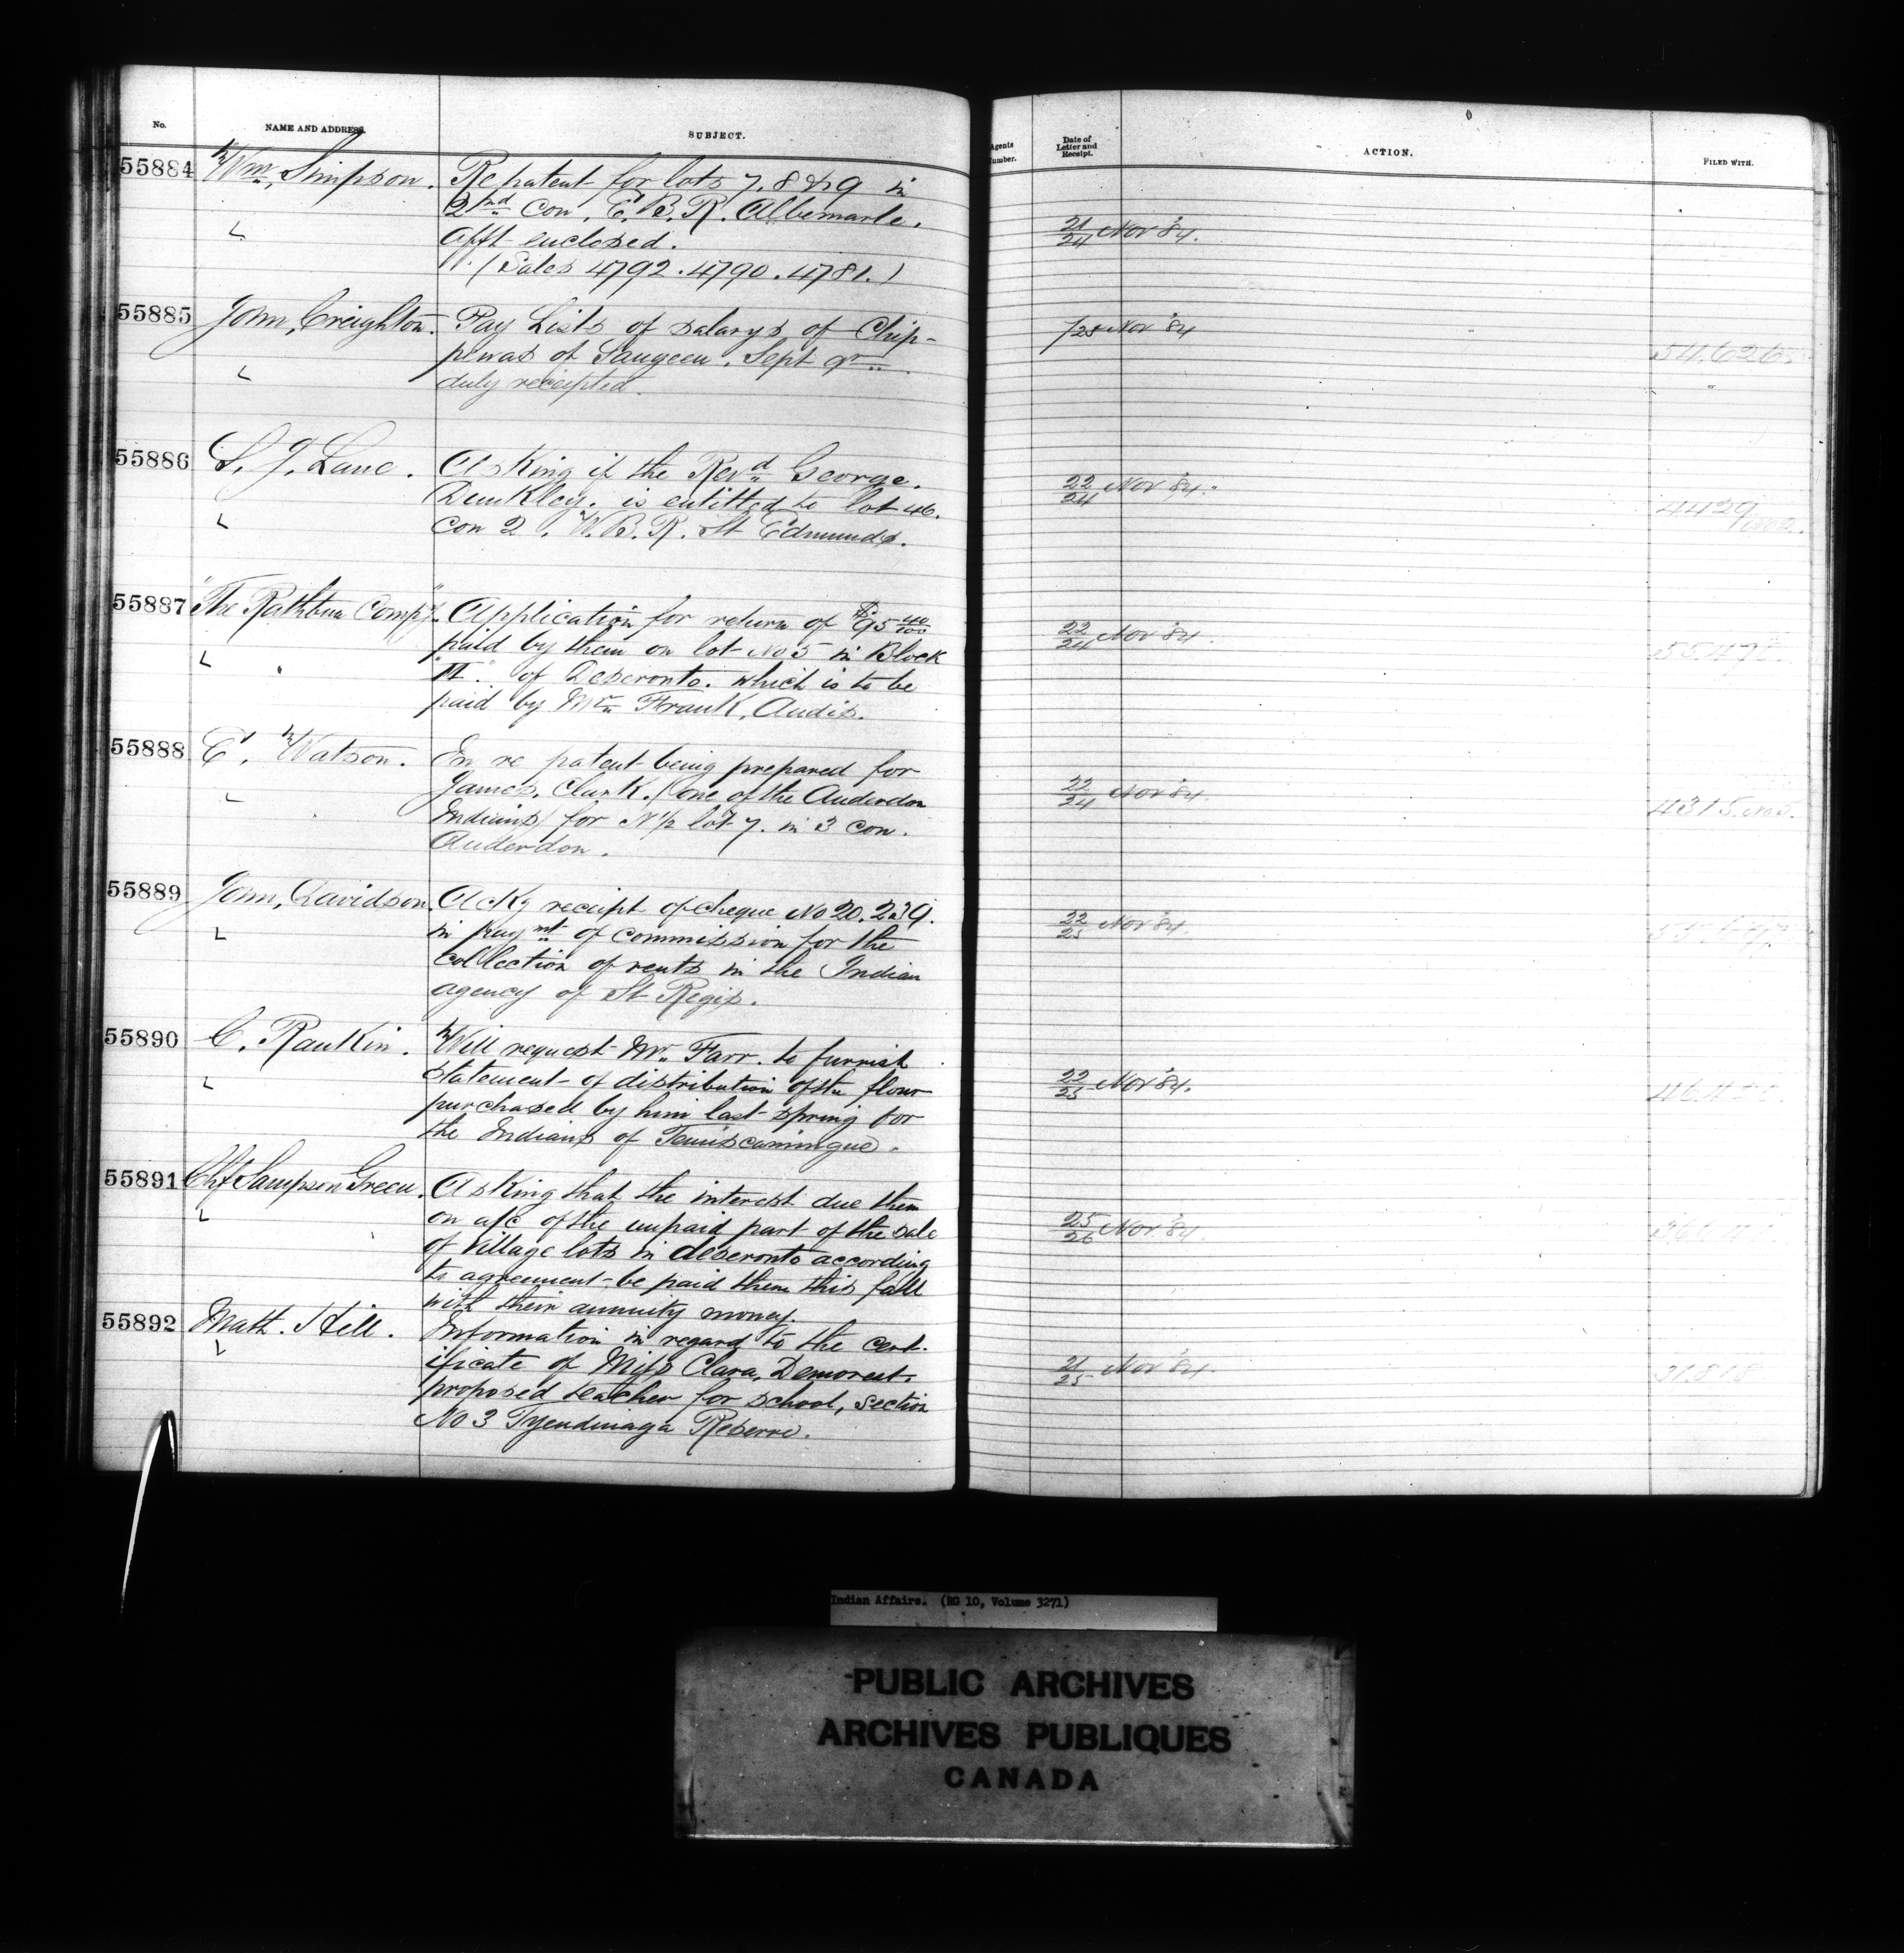 No. NAME AND ADDRESS. SUBJECT. Agents Number. Date of Letter and Receipt. ACTION. FILED WITH.
55884 Wm. Simpson. Re patent for lots 7. 8 & 9 in
2nd Con. E. B. R. Albemarle.
Afft enclosed. 21/24 Nov '84.
(Sales 4792. 4790. 4781.)
55885 John, Creighton. Pay Lists of salarys of Chip- /25 Nov '84
pewas of Saugeen. Sept qr 54,626
duly receipted.
55886 S. J. Lane. Asking if the Revd George.
Dunkley. is entitled to lot 46. 22/24 Nov '84.
Con 2. W. B. R. St Edmunds. 4429
55887 "The Rathbun Compy" Application for return of $95 40/100
paid by them on lot No 5 in Block 22/24 Nov '84.
of Deseronto. which is to be
paid by Mr. Frank, Andis.
55888 E. Watson. In re patent being prepared for
James. Clark. (one of the Anderdon 22/24 Nov '84.
Indians) for N 1/2 lot 7. in 3 con. 4315. No 5.
Anderdon.
55889 John, Davidson. Ackg receipt of cheque No 20.239.
in paymt of commission for the 22/25 Nov '84.
collection of rents in the Indian
agency of St Regis.
55890 C. Rankin. Will request Mr. Farr. to furnish
statement of distribution of the flour 22/25 Nov '84.
purchased by him last spring for
the Indians of Temiscamingue.
55891 Chf Sampson Green. Asking that the interest due them
on a/c of the unpaid part of the sale 25/26 Nov '84.
of village lots in deseronto according
to agreement be paid them this fall
with their annuity money.
55892 Matt. Hill. Information in regard to the cert-
ificate of Miss Clara, Demorest. 21/25 Nov '84.
proposed teacher for school, section 31.818
No 3 Tyendinaga Reserve.
Indian Affairs. (RG 10, Volume 3271)
PUBLIC ARCHIVES
ARCHIVES PUBLIQUES
CANADA